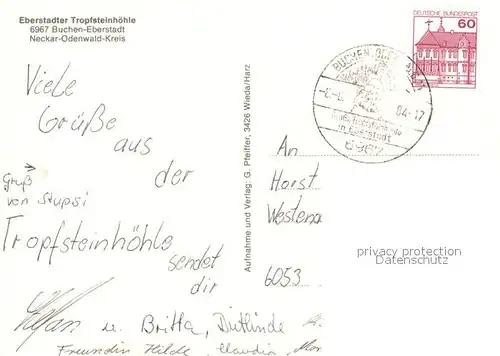 Eberstadter Tropfsteinhöhle
6967 Buchen-Eberstadt
Neckar-Odenwald-Kreis
DEUTSCHE BUNDESPOST
60
BUCHEN
84-17
in Eberstadt
6967
Viele
Grüße
aus
der
Gruß
von Stupsi
Tropfsteinhöhle
sendet
dir
u. Britta, Dietlinde
Freundin Hilde, Claudia
Aufnahme und Verlag: G. Pfeiffer, 3426 Wieda/Harz
An
Horst
6053
privacy protection
Datenschutz